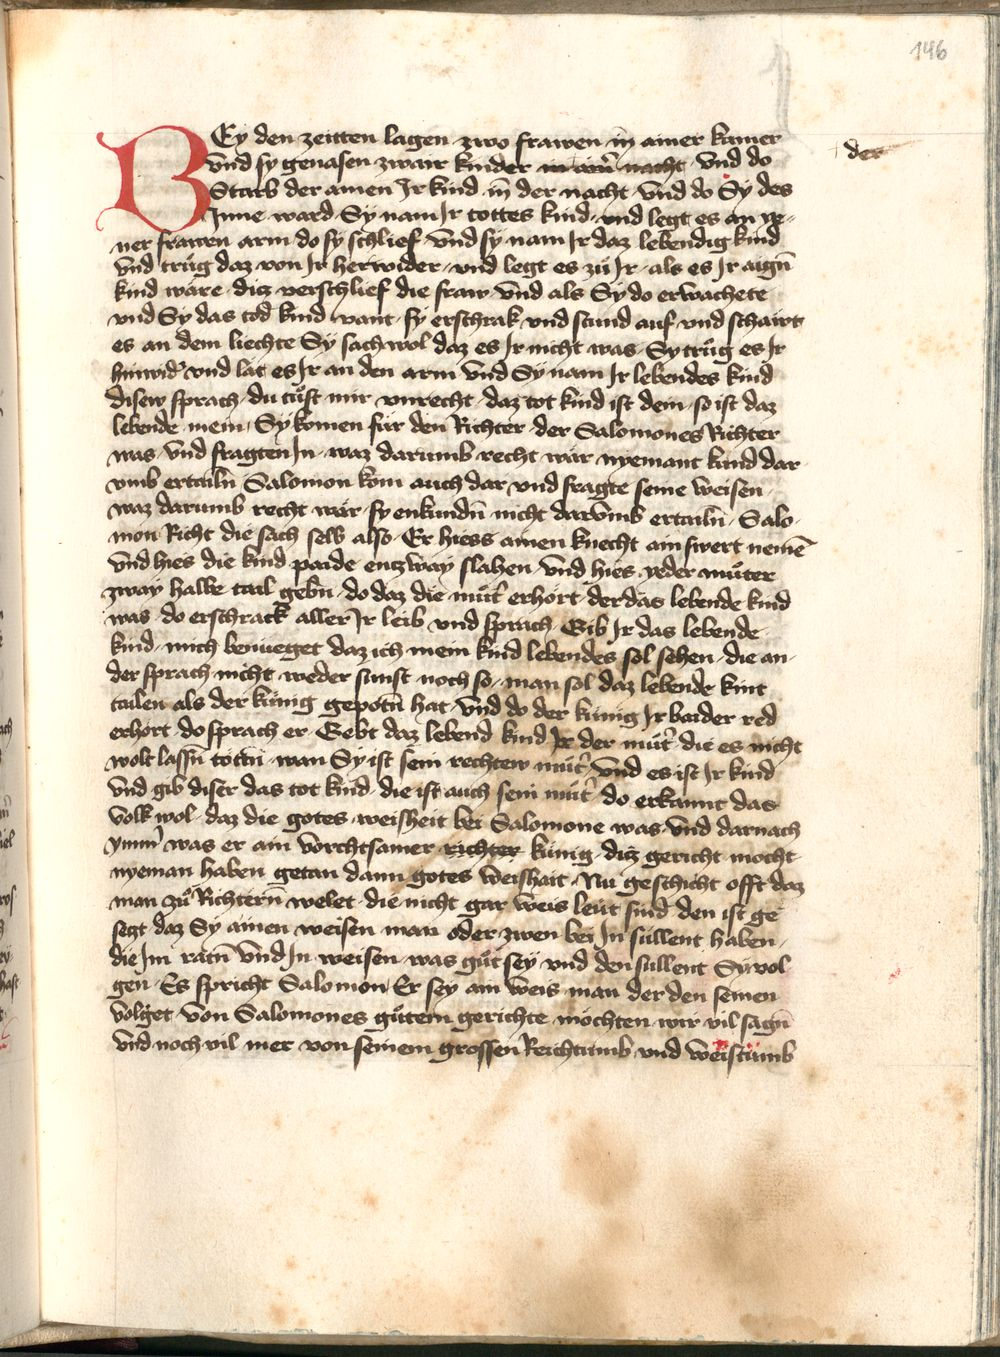 146
BEy den zeitten lagen zwo frawen in ainer kamer
vnd sy genasen zwair kinder in ainer nacht vnd do
der
Starb der ainen Ir kind in der nacht vnd do Sy des
Inne ward Sy nam Ir tottes kind vnd legt es an ye-
ner frawen arm do sy schlief vnd sy nam Ir daz lebendig kind
vnd trug daz von Ir herwider vnd legt es zů Ir als es Ir aign̄
kind wäre ditz verschlief die fraw vnd als Sy do erwachete
vnd Sy das tod kind vant sy erschrak vnd stund auf vnd schawt
es an dem liechte Sy sach wol daz es Ir nicht was Sy trůg es Ir
hinwid' vnd lät es Ir an den arm vnd Sy nam Ir lebendes kind
disew sprach du tůst mir vnrecht daz tot kind ist dein so ist daz
lebende mein Sy komen für den Richter der Salomones Richter
was vnd fragten In waz darumb recht wär nyemant kund dar
vmb ertailn̄ Salomon kom auch dar vnd fragte seine weisen
waz darumb recht wär sy enkundn̄ nicht darumb ertailn̄ Salo-
mon Richt die sach selb also Er hiess ainen knecht ain swert nemē
vnd hies die kind paide entzway slahen vnd hies yeder můter
zway halbe tail gebn̄ do daz die můt' erhört der das lebende kind
was do erschrack aller Ir leib vnd sprach Gib Ir das lebende
kind mich benueget daz ich mein kind lebendes sol sehen die an-
der sprach nicht weder sunst noch so man sol daz lebende kint
tailen als der künig gepotn̄ hat vnd do der künig Ir baider red
erhört do sprach er Gebt daz lebend kind Ir der můt' die es nicht
wolt lassn̄ töttn̄ wan Sy ist sein rechtew můt' vnd es ist Ir kind
vnd gib diser das tot kind die ist auch sein můt' do erkannt das
volk wol daz die gotes weisheit bei Salomone was vnd darnach
ymm' was er ain vorchtsamer richter künig ditz gericht mocht
nyeman haben getan dann gotes weishait Nu geschicht offt daz
man zů Richtern̄ welet die nicht gar weis leüt sind den ist ge
segt daz Sy ainen weisen man oder zwen bei In süllent haben
die Im rätn̄ vnd In weisen was gůt sey vnd den süllent Sy vol
gen Es spricht Salomon Er sey ain weis man der den seinen
volget von Salomones gůtem gerichte möchten wir vil sagn̄
vnd noch vil mer von seinem grossen Reichtumb vnd weistumb